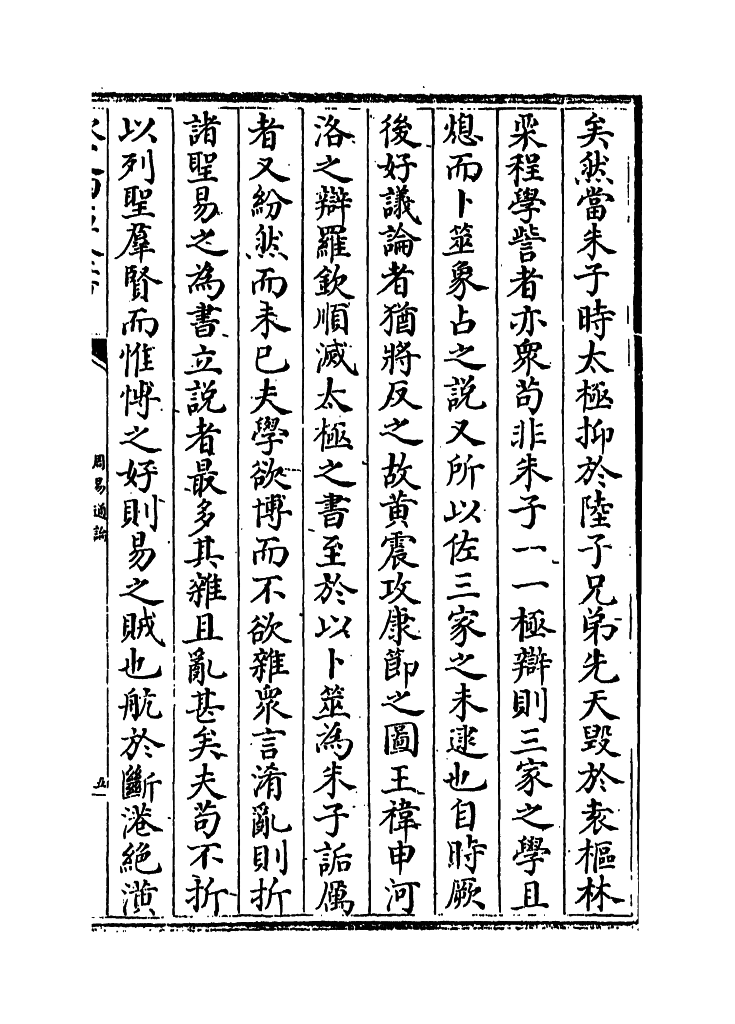 矣然當朱子時太極抑於陸子兄弟先天毀於袁樞林
栗程學訾者亦衆苟非朱子一一極辯則三家之學且
熄而卜筮象占之說又所以佐三家之未逮也自時厥
後好議論者猶將反之故黄震攻康節之圖王褘申河
洛之辯羅欽順滅太極之書至於以卜筮為朱子詬厲
者又紛然而未已夫學欲博而不欲雜衆言淆亂則折
諸聖易之為書立說者最多其雜且亂甚矣夫苟不折
以列聖羣賢而惟博之好則易之賊也航於斷港絕潢
周易通論
五